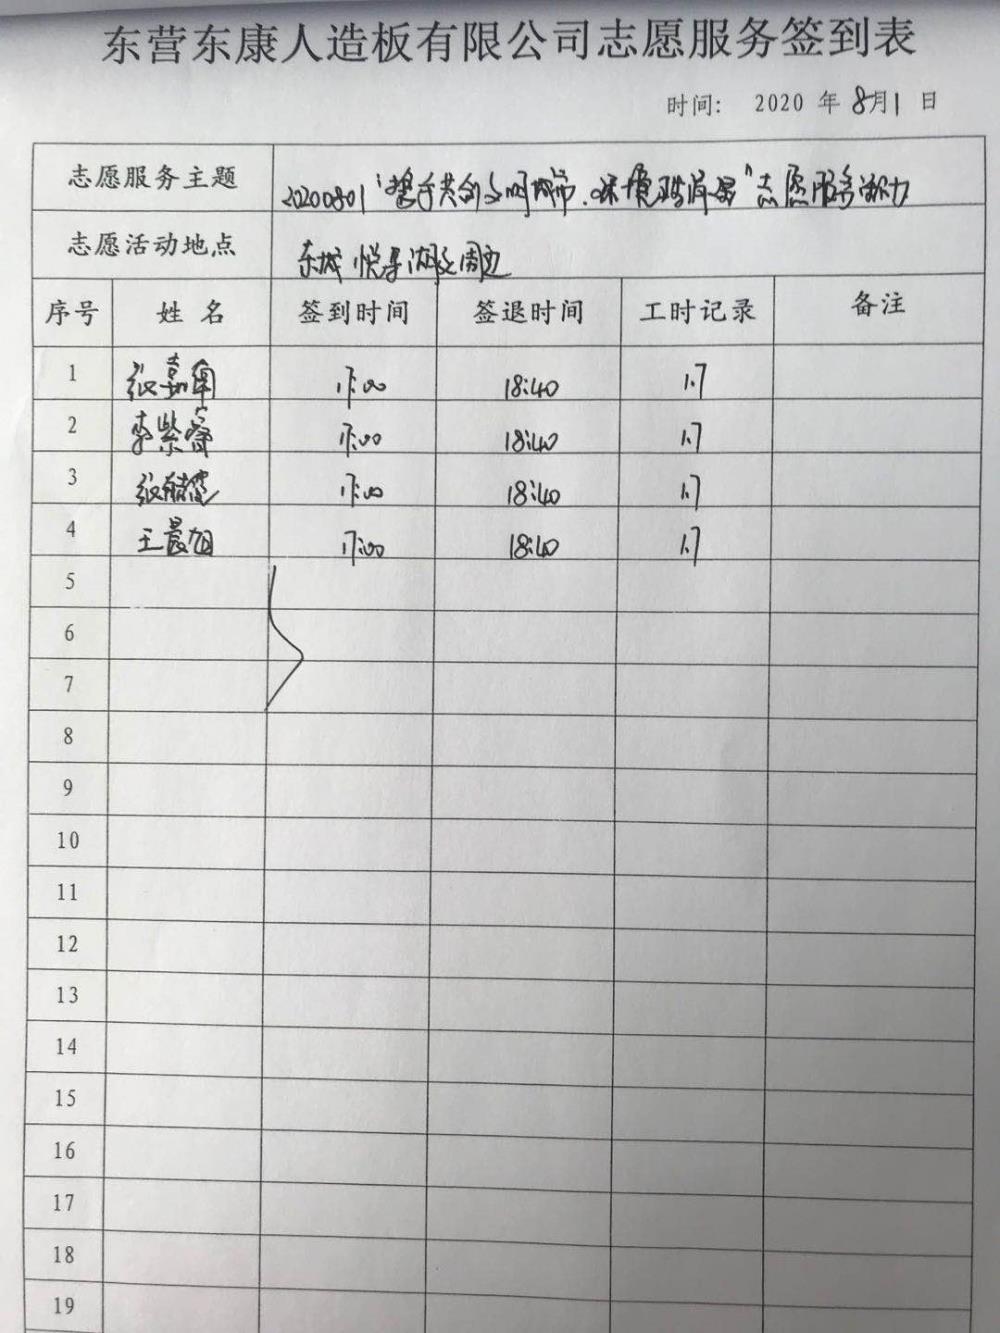 东营东康人造板有限公司志愿服务签到表
时间: 2020 年 8月1 日
志愿服务主题 20200801"携手共创文明城市.环境 "志愿服务活动
志愿活动地点 东城 悦 湖 周边
序号 姓 名 签到时间 签退时间 工时记录 备注
1 张嘉 17:00 18:40 1.7
2 李紫睿 17:00 18:40 1.7
3 张 17:00 18:40 1.7
4 王晨旭 17:00 18:40 1.7
5
6
7
8
9
10
11
12
13
14
15
16
17
18
19